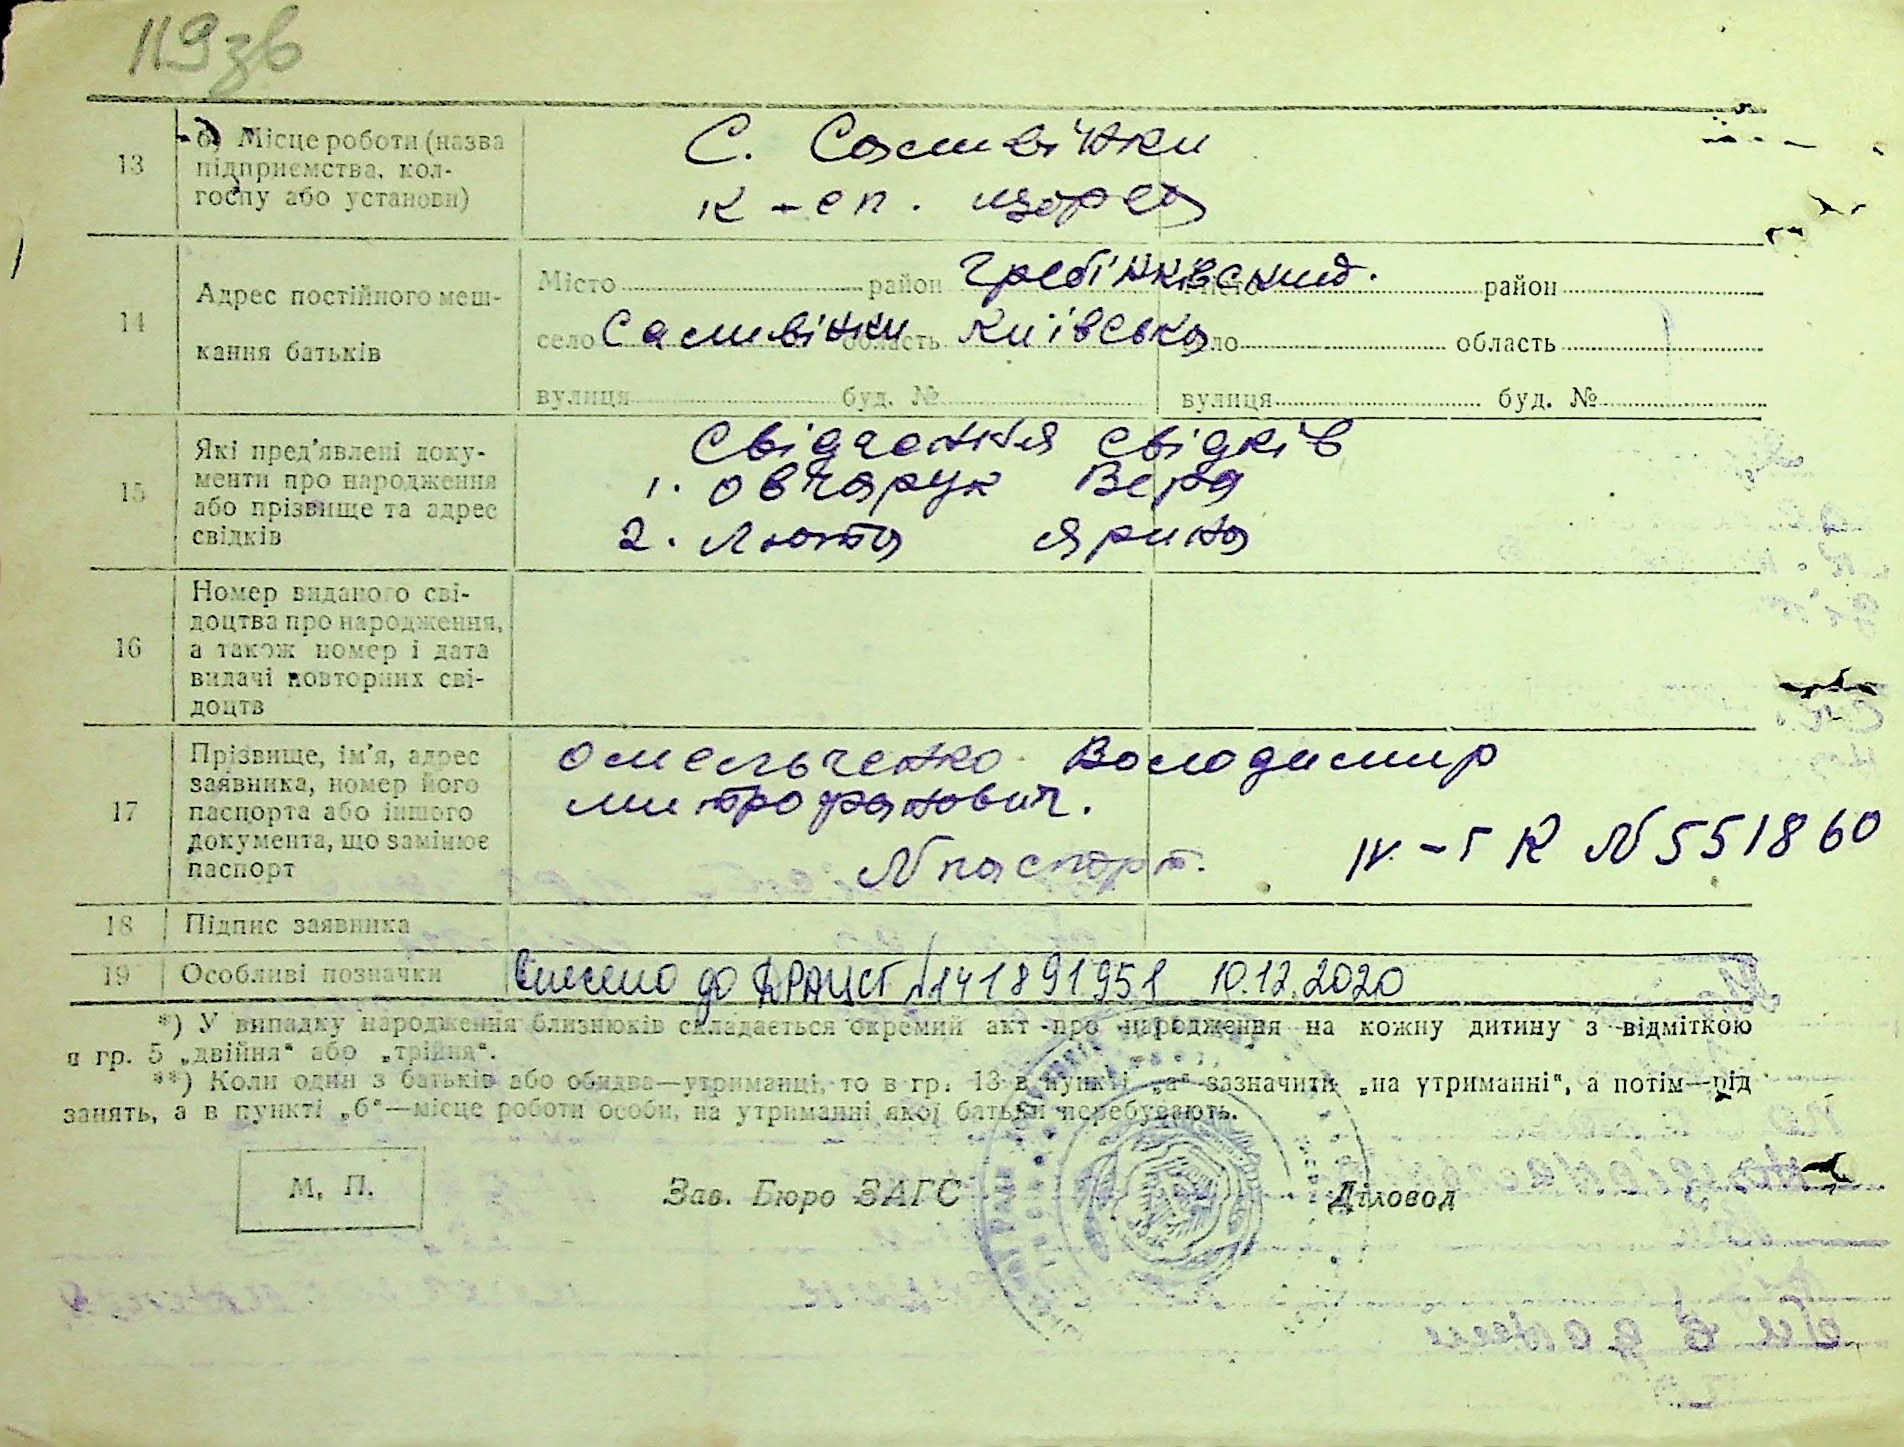 119зв
13 б) Місце роботи (назва
підприємства, кол-
госпу або установи)
С. Саливінки
к-сп. щорса
14 Адрес постійного меш-
кання батьків
Місто район Гребінківський. Місто район
село Саливінки область Київська село область
вулиця буд. № вулиця буд. №
15 Які пред'явлені доку-
менти про народження
або прізвище та адрес
свідків
Свідчення свідків
1. Овчарук Вера
2. Люта Ярина
16 Номер виданого сві-
доцтва про народження,
а також номер і дата
видачі повторних сві-
доцтв
17 Прізвище, ім'я, адрес
заявника, номер його
паспорта або іншого
документа, що замінює
паспорт
Омельченко Володимир
Митрофанович.
№ паспорт. IV-ГК № 551860
18 Підпис заявника
19 Особливі позначки Внесено до ДРАЦСГ №141891951 10.12.2020
*) У випадку народження близнюків складається окремий акт про народження на кожну дитину з відміткою
в гр. 5 „двійня" або „трійня".
**) Коли один з батьків або обидва—утриманці, то в гр. 13 в пункті „а" зазначити „на утриманні", а потім—рід
занять, а в пункті „б"—місце роботи особи, на утриманні якої батьки перебувають.
М. П. Зав. Бюро ЗАГС Діловод